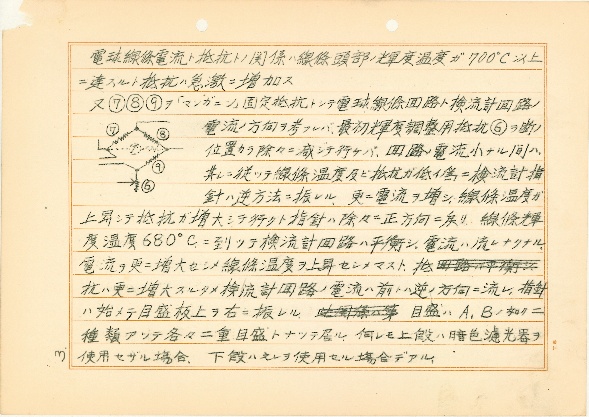 電球線條電流ト抵抗トノ関係ハ線條頭部ノ輝度温度ガ700°C以上
ニ達スルト抵抗ハ急激ニ増加ス
又⑦⑧⑨ヲ「マンガニン」固定抵抗トシテ電球線條回路ト検流計回路ノ
電流ノ方向ヲ考フレバ、最初輝度調整用抵抗⑥ヲ断ノ
位置カラ除々ニ減ジテ行ケバ、回路ノ電流小ナル間ハ、
共レニ従ッテ線條温度及ビ抵抗ガ低イ為ニ検流計指
針ハ逆方法ニ振レル、更ニ電流ヲ増シ、線條温度ガ
上昇シテ抵抗ガ増大シテ行クト指針ハ除々ニ正方向ニ戻リ、線條輝
度温度680°Cニ到ッテ検流計回路ハ平衡シ、電流ハ流レナクナル、
電流ヲ更ニ増大セシメ線條温度ヲ上昇セシメマスト、抵
抗ハ更ニ増大スルタメ検流計回路ノ電流ハ前トハ逆ノ方向ニ流レ、指針
ハ始メテ目盛板上ヲ右ニ振レル、目盛ハA、Bノ如ク二
種類アッテ各々二重目盛トナッテ居ル、何レモ上段ハ暗色濾光器ヲ
使用セザル場合、下段ハモレヲ使用セル場合デアル、
⑦
⑧
⑨
⑥